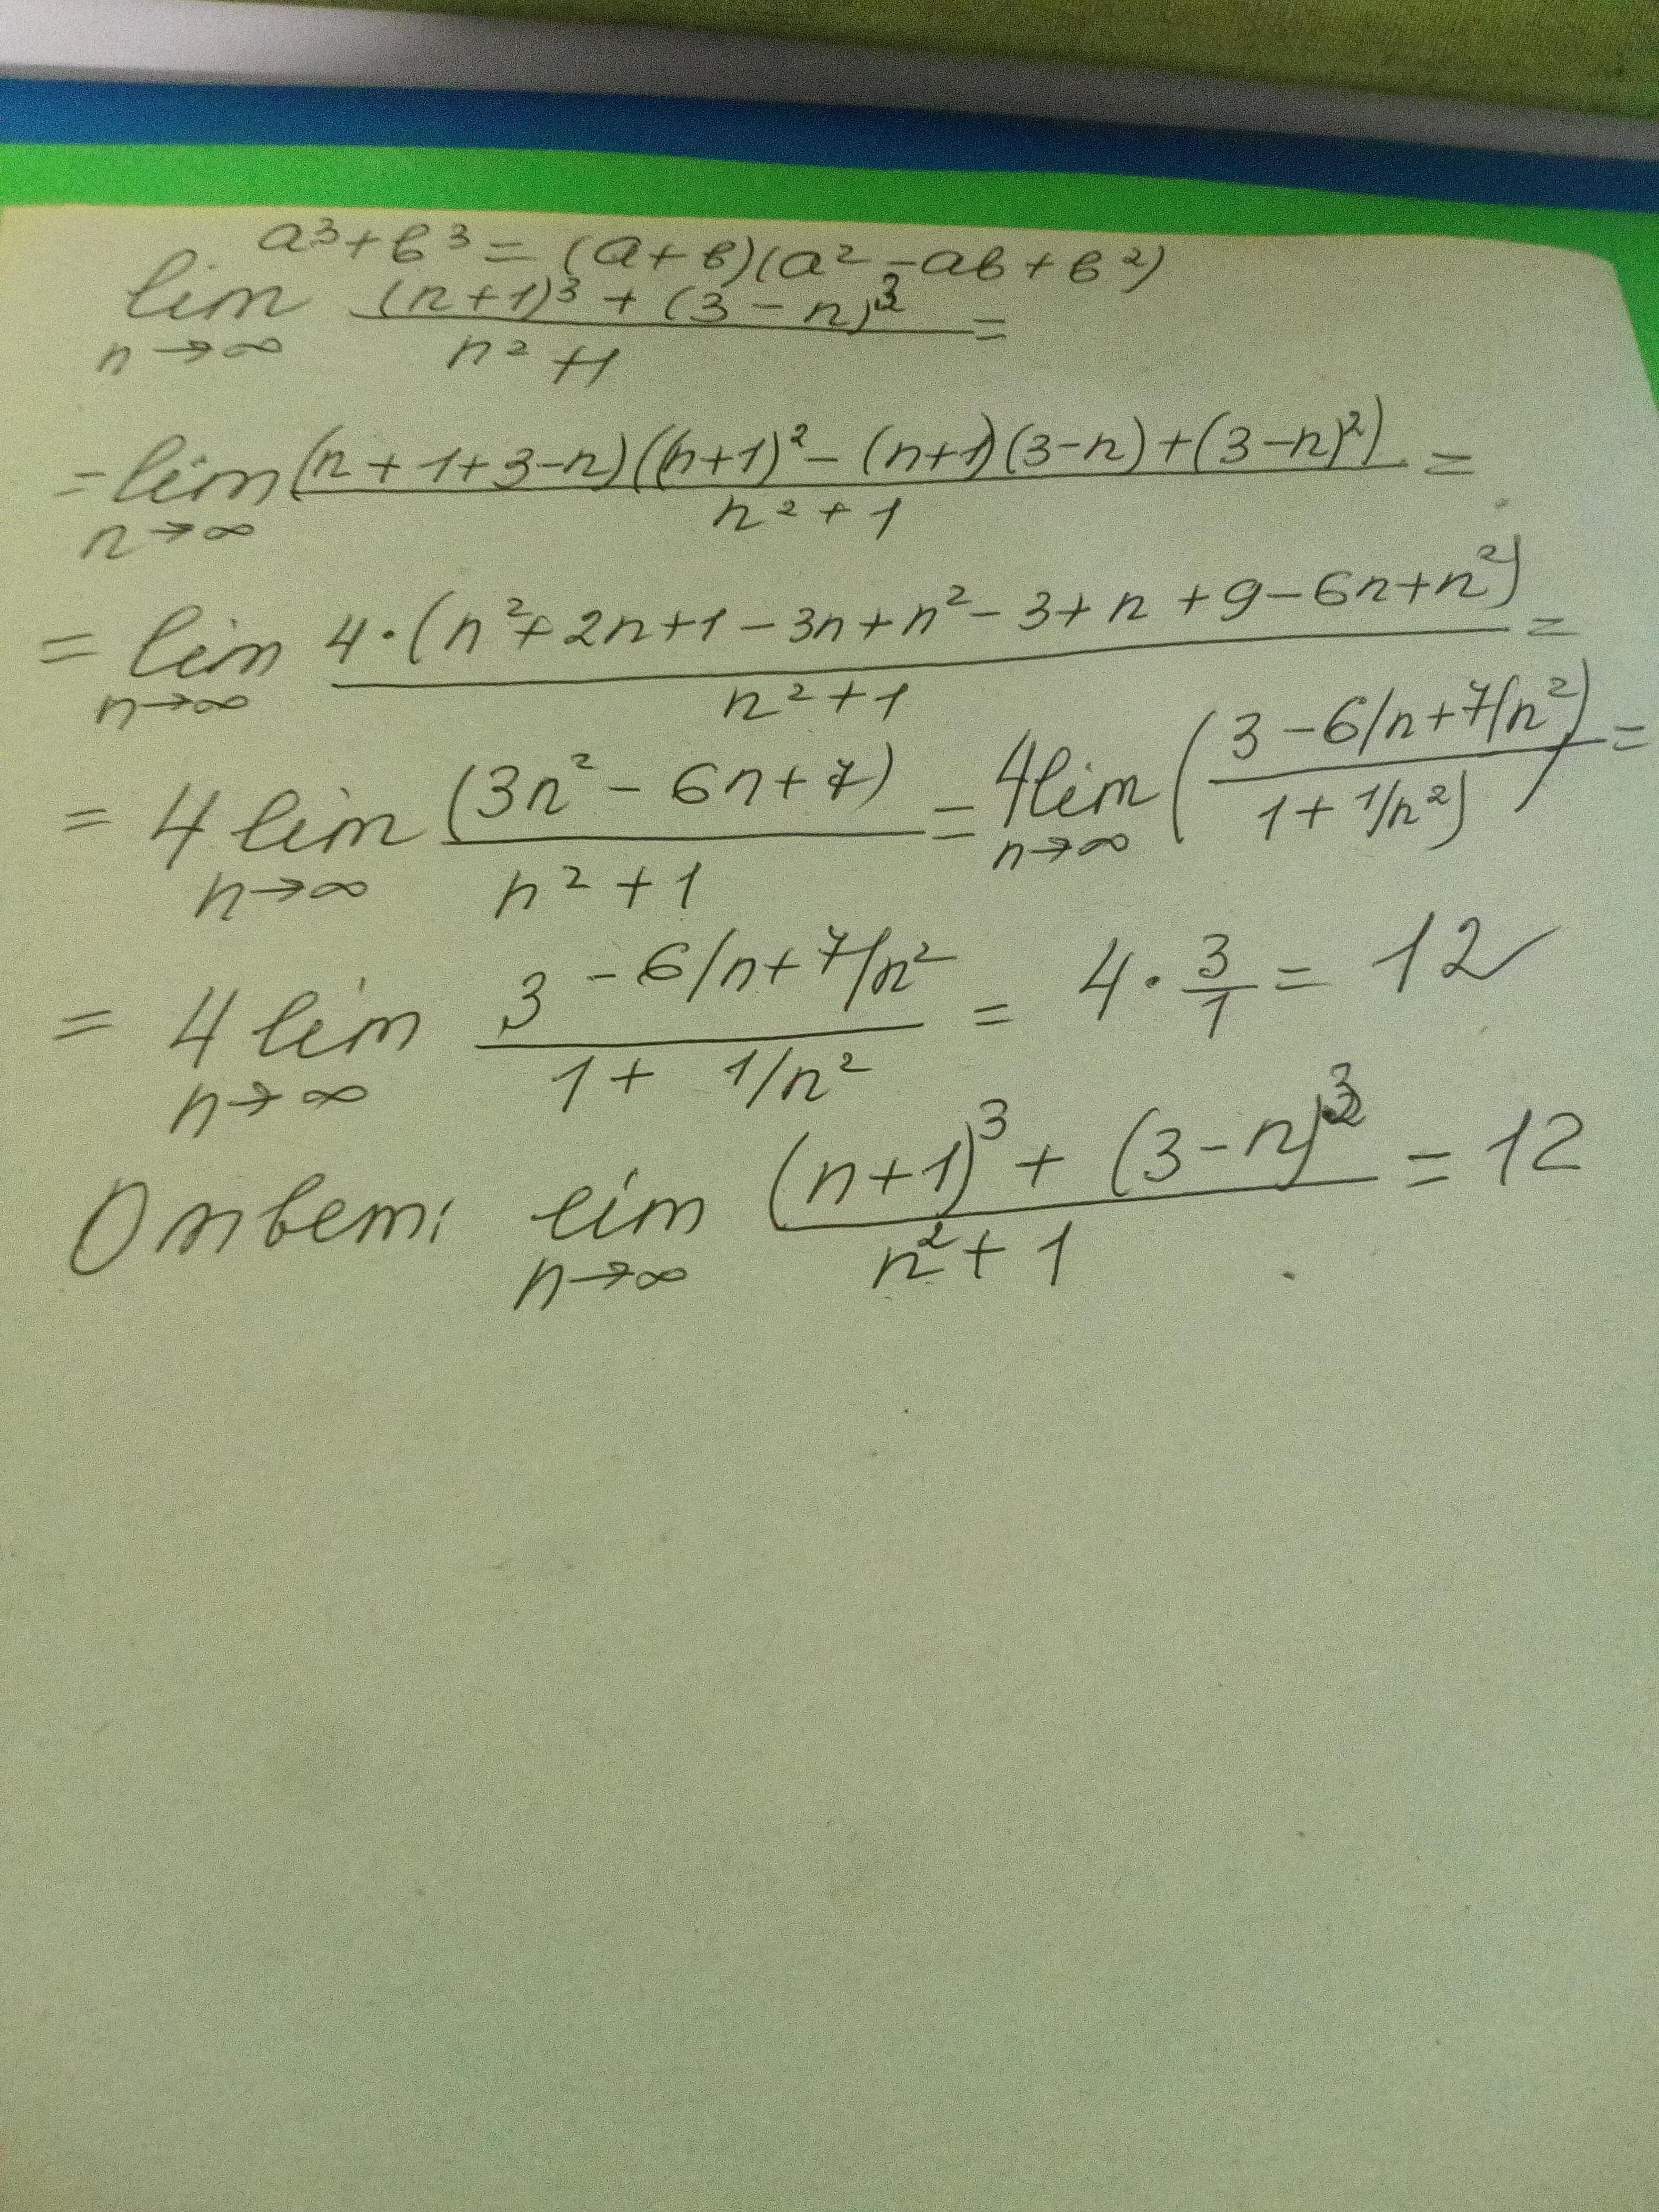 a³+b³=(a+b)(a²-ab+b²)
lim n→∞ ((n+1)³+(3-n)³)/(n²+1) =
= lim n→∞ ((n+1+3-n)((n+1)²-(n+1)(3-n)+(3-n)²))/(n²+1) =
= lim n→∞ (4·(n²+2n+1-3n+n²-3+n+9-6n+n²))/(n²+1) =
= 4 lim n→∞ (3n²-6n+7)/(n²+1) = 4 lim n→∞ ((3-6/n+7/n²)/(1+1/n²)) =
= 4 lim n→∞ (3-6/n+7/n²)/(1+1/n²) = 4·3/1 = 12
Ответ: lim n→∞ ((n+1)³+(3-n)³)/(n²+1) = 12